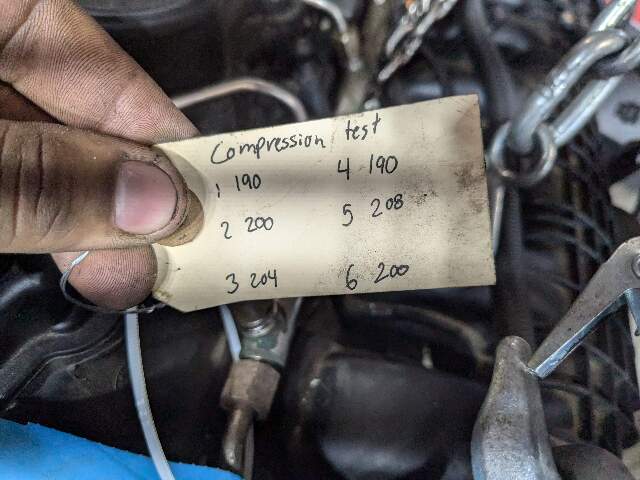 Compression test
1 190 4 190
2 200 5 208
3 204 6 200